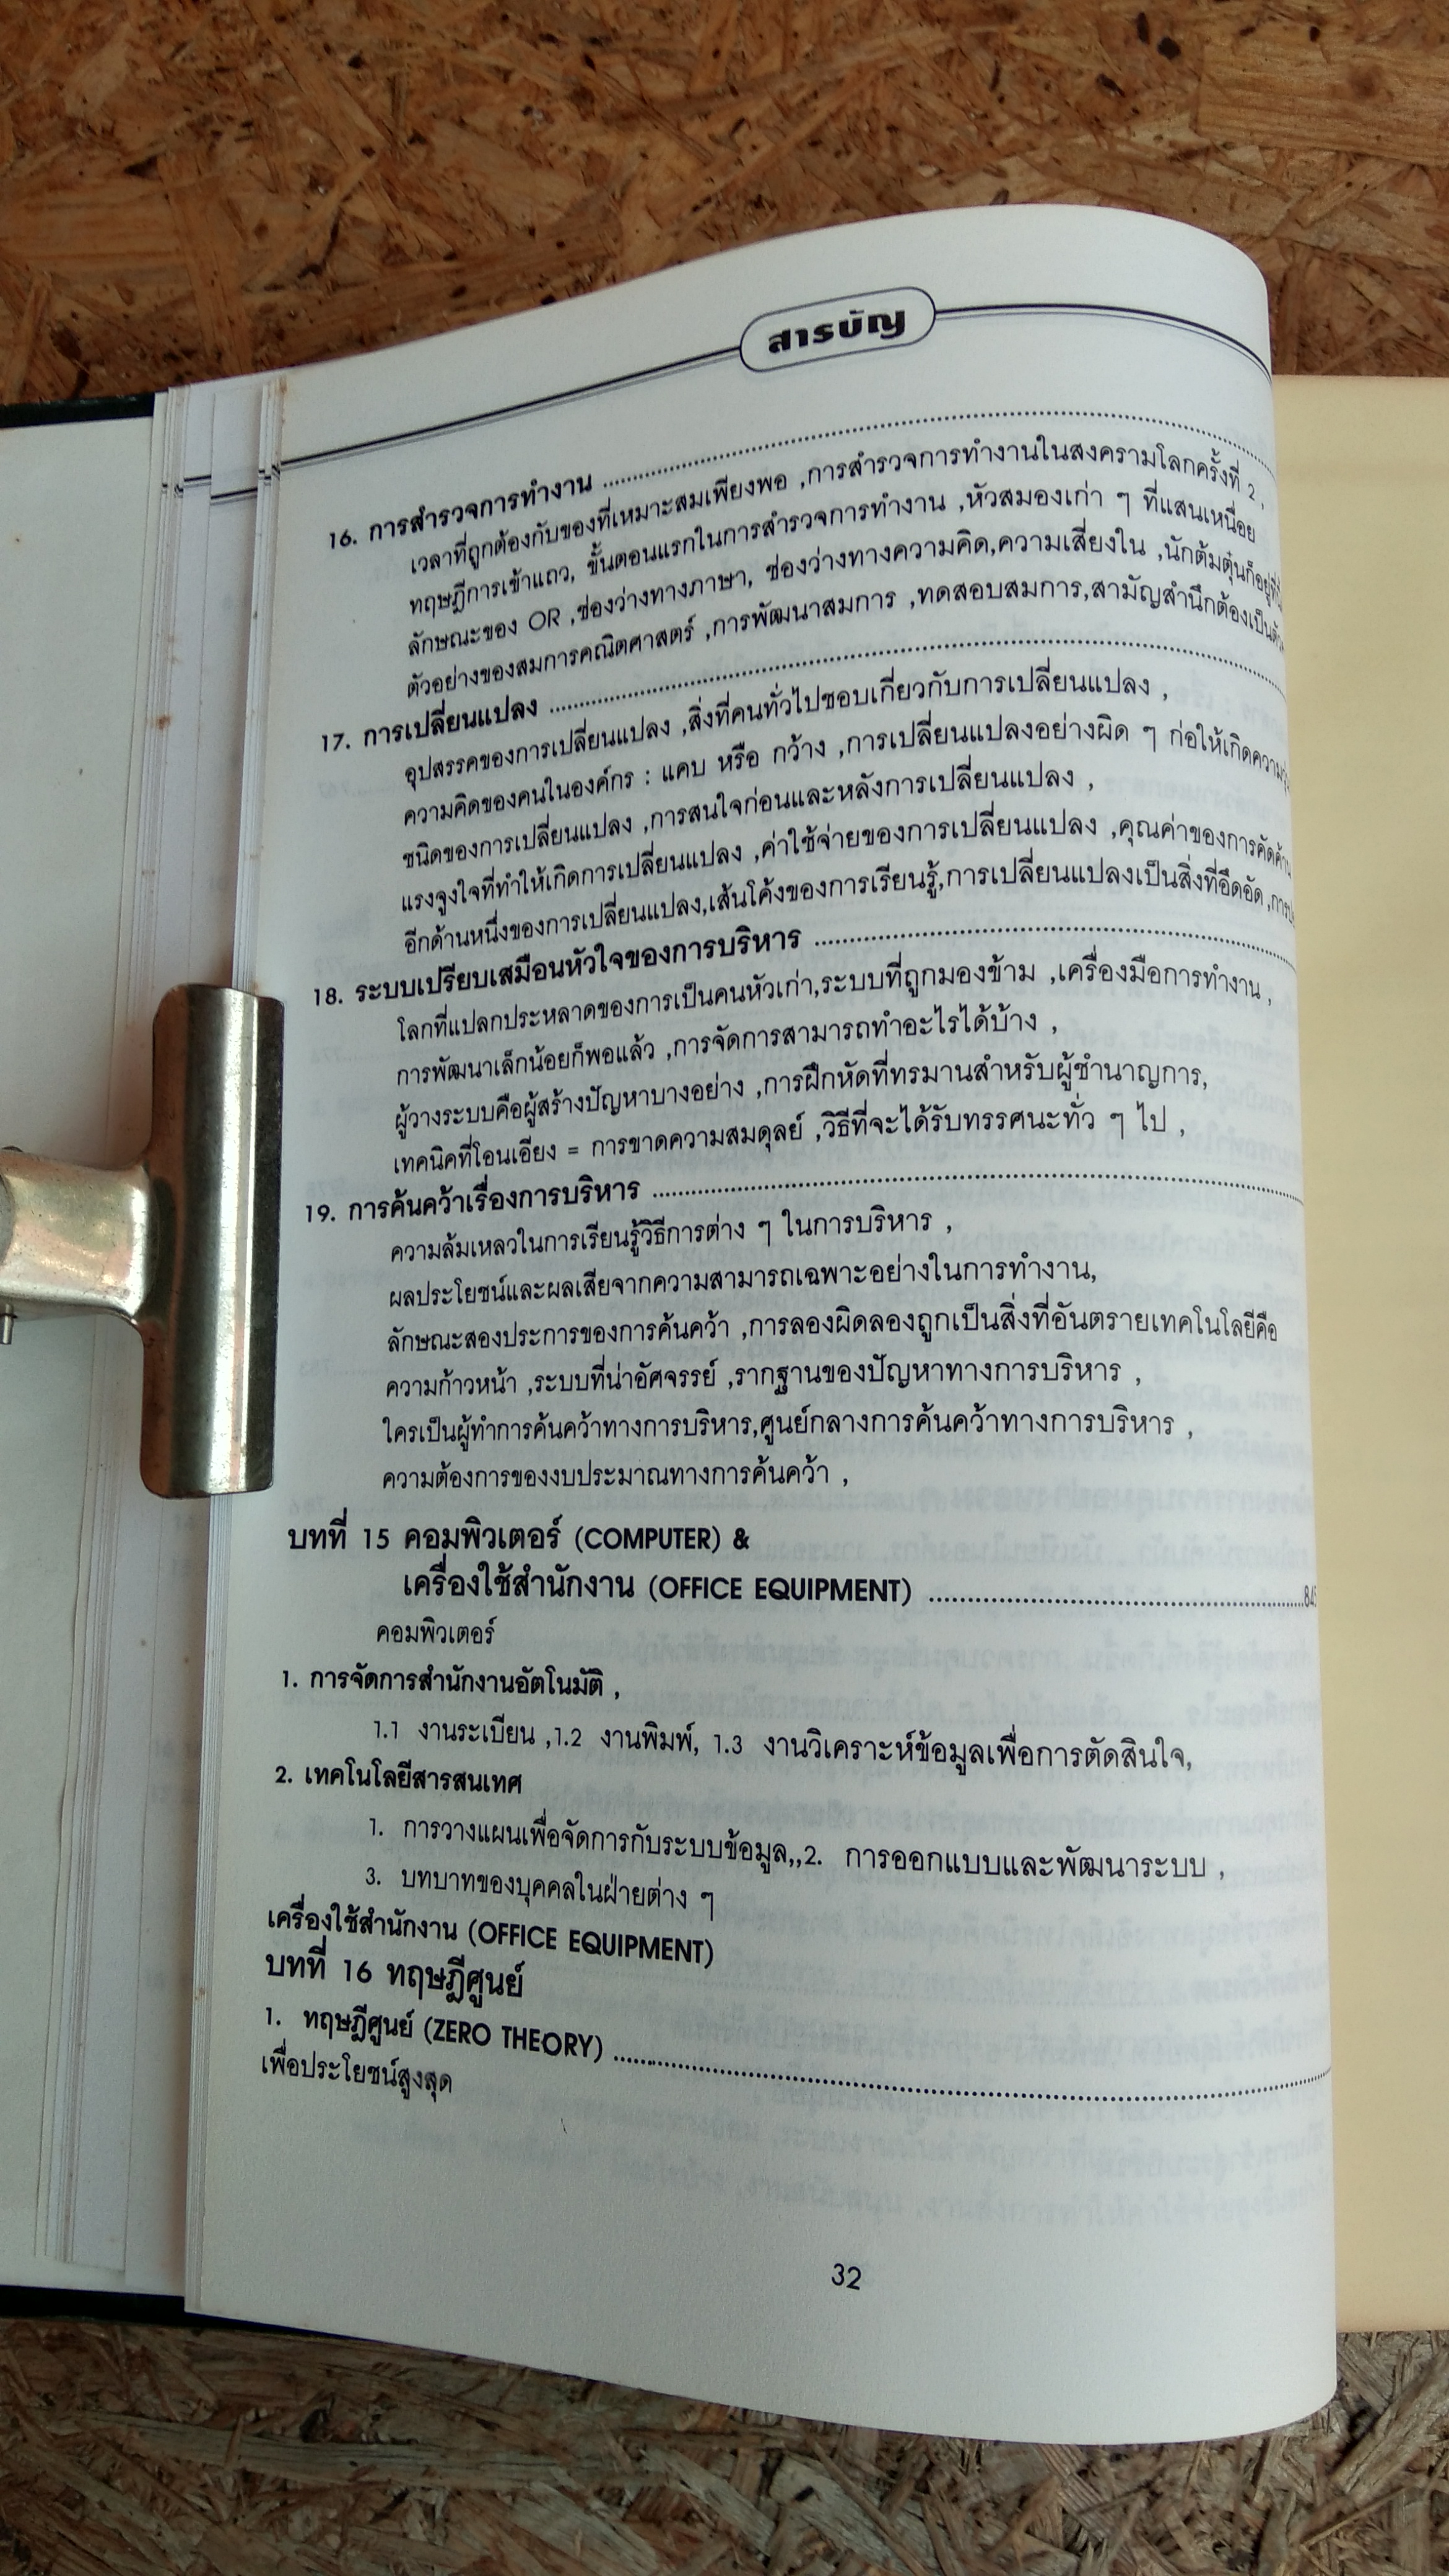 สารบัญ
16. การสำรวจการทำงาน
เวลาที่ถูกต้องกับของที่เหมาะสมเพียงพอ ,การสำรวจการทำงานในสงครามโลกครั้งที่ 2 ,
ทฤษฎีการเข้าแถว, ขั้นตอนแรกในการสำรวจการทำงาน ,หัวสมองเก่า ๆ ที่แสนเหนื่อย
ลักษณะของ OR ,ช่องว่างทางภาษา, ช่องว่างทางความคิด,ความเสี่ยงใน ,นักต้มตุ๋นก็อยู่ที่
ตัวอย่างของสมการคณิตศาสตร์ ,การพัฒนาสมการ ,ทดสอบสมการ,สามัญสำนึกต้องเป็น
17. การเปลี่ยนแปลง
อุปสรรคของการเปลี่ยนแปลง ,สิ่งที่คนทั่วไปชอบเกี่ยวกับการเปลี่ยนแปลง ,
ความคิดของคนในองค์กร : แคบ หรือ กว้าง ,การเปลี่ยนแปลงอย่างผิด ๆ ก่อให้เกิดความ
ชนิดของการเปลี่ยนแปลง ,การสนใจก่อนและหลังการเปลี่ยนแปลง ,
แรงจูงใจที่ทำให้เกิดการเปลี่ยนแปลง ,ค่าใช้จ่ายของการเปลี่ยนแปลง ,คุณค่าของการคัดค้าน
อีกด้านหนึ่งของการเปลี่ยนแปลง,เส้นโค้งของการเรียนรู้,การเปลี่ยนแปลงเป็นสิ่งที่อึดอัด
18. ระบบเปรียบเสมือนหัวใจของการบริหาร
โลกที่แปลกประหลาดของการเป็นคนหัวเก่า,ระบบที่ถูกมองข้าม ,เครื่องมือการทำงาน ,
การพัฒนาเล็กน้อยก็พอแล้ว ,การจัดการสามารถทำอะไรได้บ้าง ,
ผู้วางระบบคือผู้สร้างปัญหาบางอย่าง ,การฝึกหัดที่ทรมานสำหรับผู้ชำนาญการ,
เทคนิคที่โอนเอียง = การขาดความสมดุลย์ ,วิธีที่จะได้รับทรรศนะทั่ว ๆ ไป ,
19. การค้นคว้าเรื่องการบริหาร
ความล้มเหลวในการเรียนรู้วิธีการต่าง ๆ ในการบริหาร ,
ผลประโยชน์และผลเสียจากความสามารถเฉพาะอย่างในการทำงาน,
ลักษณะสองประการของการค้นคว้า ,การลองผิดลองถูกเป็นสิ่งที่อันตรายเทคโนโลยีคือ
ความก้าวหน้า ,ระบบที่น่าอัศจรรย์ ,รากฐานของปัญหาทางการบริหาร ,
ใครเป็นผู้ทำการค้นคว้าทางการบริหาร,ศูนย์กลางการค้นคว้าทางการบริหาร ,
ความต้องการของงบประมาณทางการค้นคว้า ,
บทที่ 15 คอมพิวเตอร์ (COMPUTER) &
เครื่องใช้สำนักงาน (OFFICE EQUIPMENT)
คอมพิวเตอร์
1. การจัดการสำนักงานอัตโนมัติ ,
1.1 งานระเบียน ,1.2 งานพิมพ์, 1.3 งานวิเคราะห์ข้อมูลเพื่อการตัดสินใจ,
2. เทคโนโลยีสารสนเทศ
1. การวางแผนเพื่อจัดการกับระบบข้อมูล,,2. การออกแบบและพัฒนาระบบ ,
3. บทบาทของบุคคลในฝ่ายต่าง ๆ
เครื่องใช้สำนักงาน (OFFICE EQUIPMENT)
บทที่ 16 ทฤษฎีศูนย์
1. ทฤษฎีศูนย์ (ZERO THEORY)
เพื่อประโยชน์สูงสุด
32